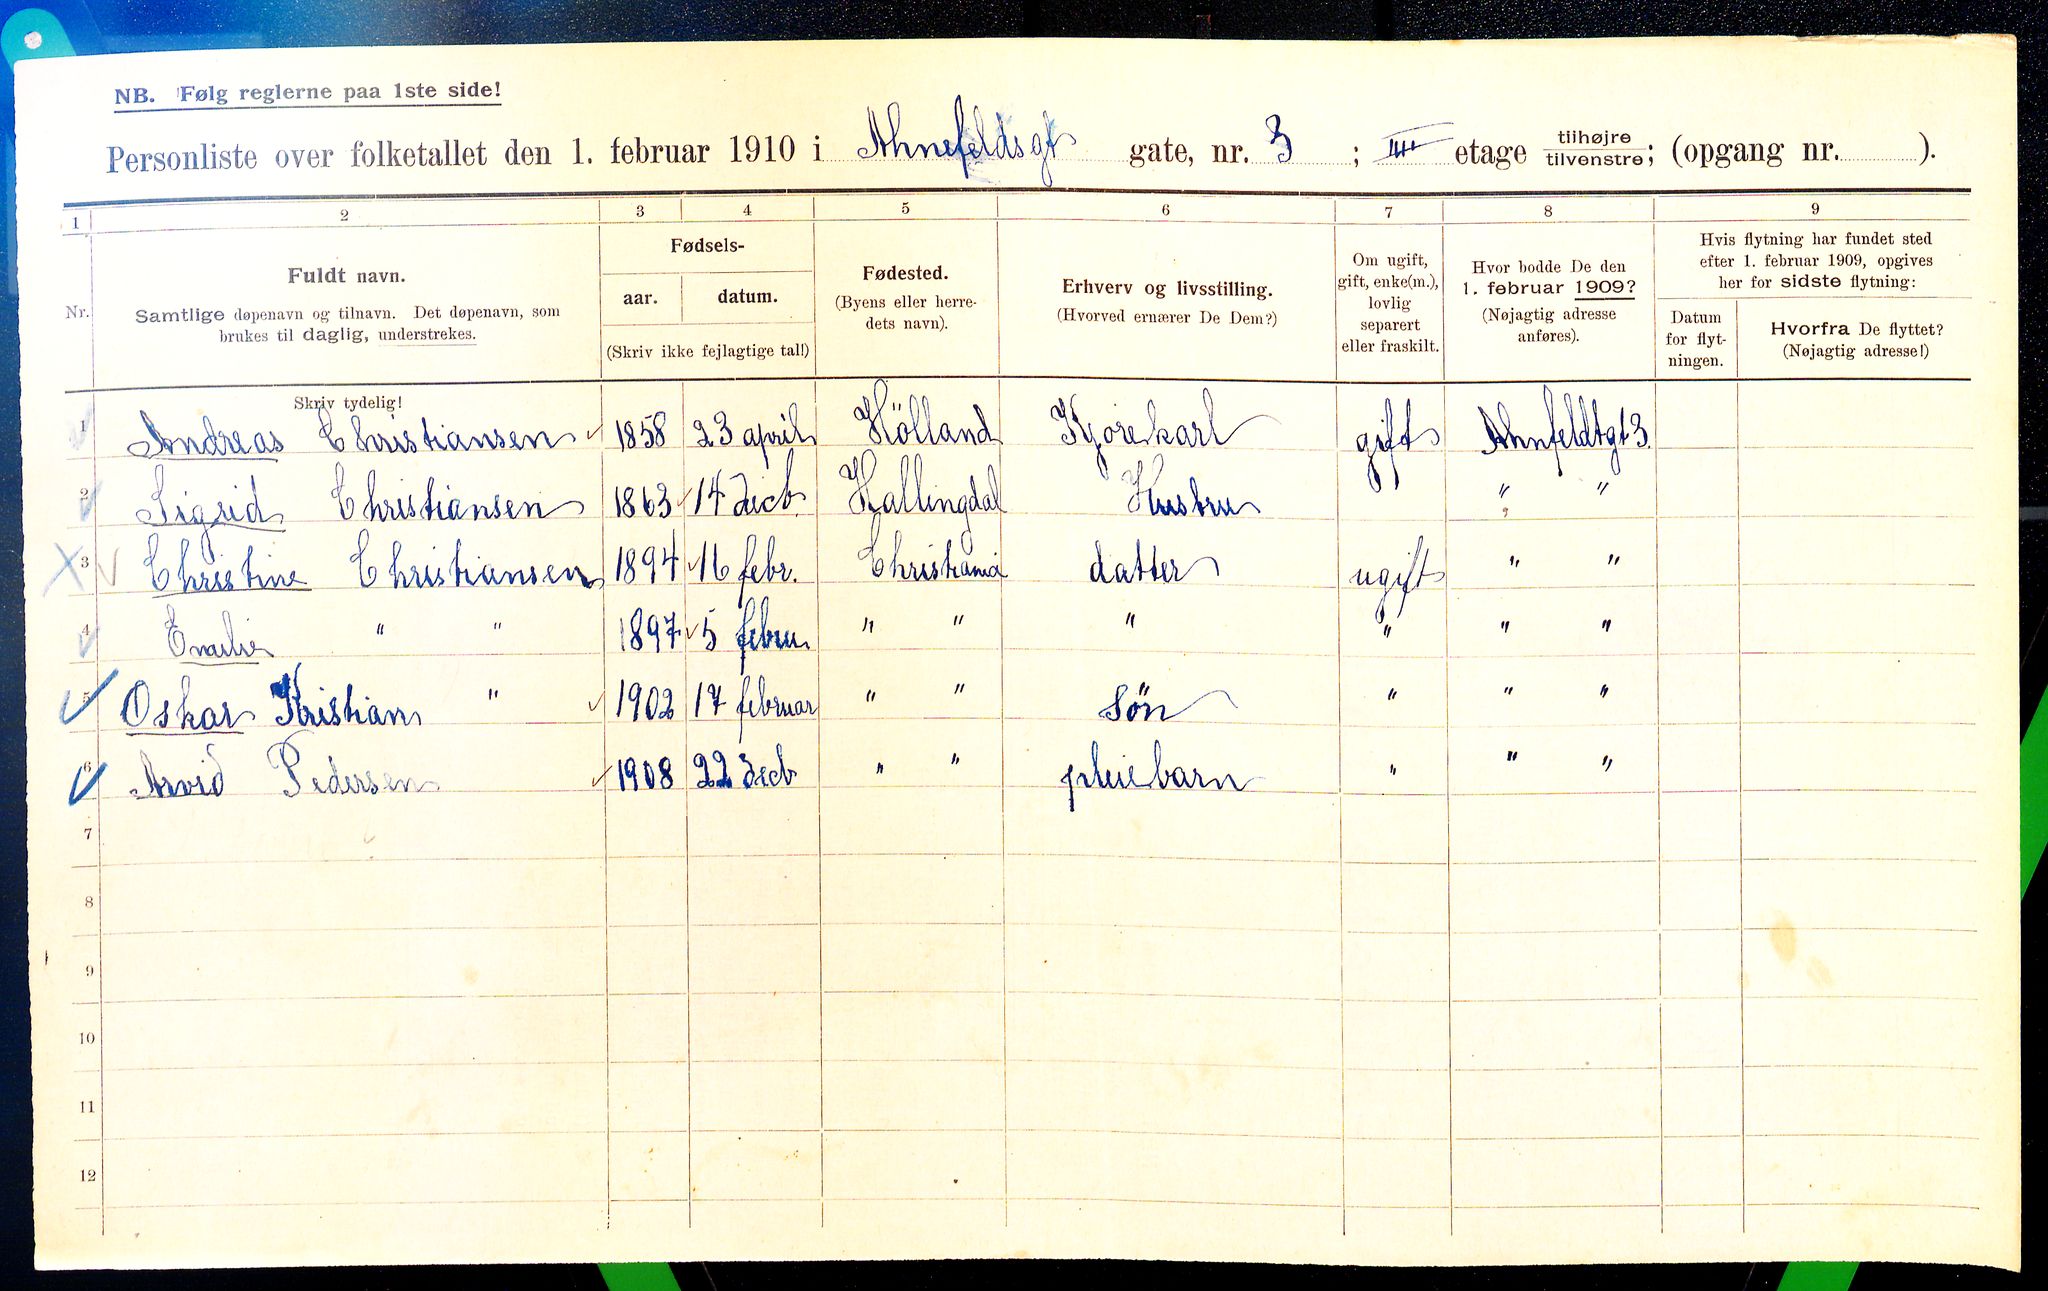 NB. Følg reglerne paa 1ste side!
Personliste over folketallet den 1. februar 1910 i Ahnefeldsgt gate, nr. 3 ; IIII etage tilhøjre tilvenstre; (opgang nr. ).
1 2 3 4 5 6 7 8 9
Nr.
Fuldt navn.
Samtlige døpenavn og tilnavn. Det døpenavn, som
brukes til daglig, understrekes.
Skriv tydelig!
Fødsels-
aar. datum.
(Skriv ikke fejlagtige tal!)
Fødested.
(Byens eller herre-
dets navn).
Erhverv og livsstilling.
(Hvorved ernærer De Dem?)
Om ugift,
gift, enke(m.),
lovlig
separert
eller fraskilt.
Hvor bodde De den
1. februar 1909?
(Nøjagtig adresse
anføres).
Hvis flytning har fundet sted
efter 1. februar 1909, opgives
her for sidste flytning:
Datum
for flyt-
ningen.
Hvorfra De flyttet?
(Nøjagtig adresse!)
1 Andreas Christiansen 1858 23 april Hölland Kjörekarl gift Ahnfeldtgt 3.
2 Sigrid Christiansen 1863 14 decb. Hallingdal Hustru " "
3 Christine Christiansen 1894 16 febr. Christiania datter ugift " "
4 Emilie " " 1897 5 febru " " " " " "
5 Oskar Kristian " 1902 17 februar " " Sön " " "
6 Arvid Pedersen 1908 22 decb " " pleiebarn " " "
7
8
9
10
11
12